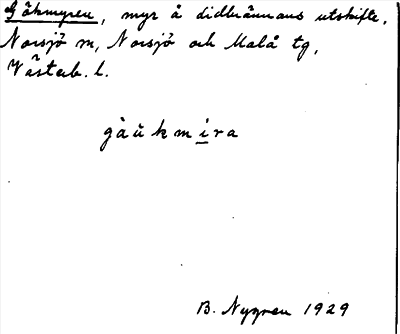 Gökmyren, myr å Lidbrännans utskifte,
Norsjö sn, Norsjö och Malå tg,
Västerb. l.
gàŭkmira
B. Nygren 1929